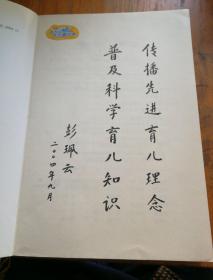 传播先进育儿理念
普及科学育儿知识
彭珮云
二〇〇四年九月